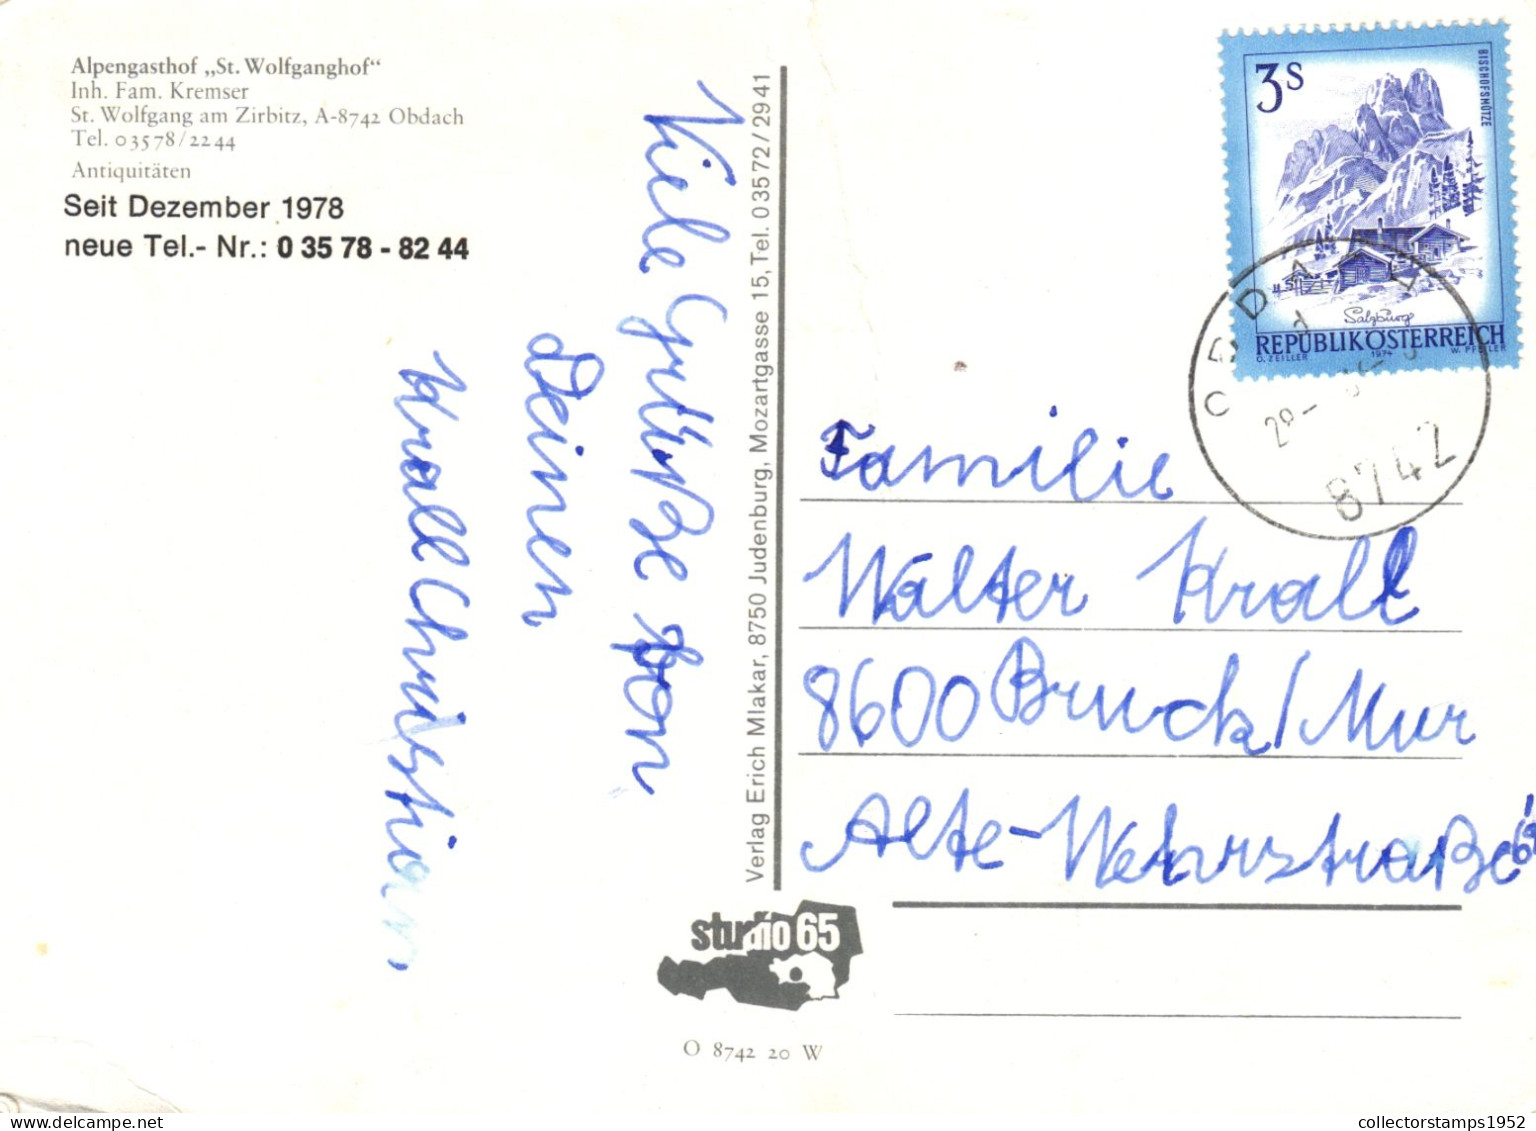 Alpengasthof „St. Wolfganghof“
Inh. Fam. Kremser
St. Wolfgang am Zirbitz, A-8742 Obdach
Tel. 03578/2244
Antiquitäten
Seit Dezember 1978
neue Tel.- Nr.: 0 35 78 - 82 44
Viele Grüße von
Deinen
Krall Christian
Verlag Erich Mlakar, 8750 Judenburg, Mozartgasse 15, Tel. 03572/2941
3S
BISCHOFSMÜTZE
Salzburg
REPUBLIK ÖSTERREICH
O. ZEILLER 1974 W. PFEILER
8742
Familie
Walter Krall
8600 Bruck/Mur
Alte-Wehrstraße
studio 65
O 8742 20 W
collectorstamps1952